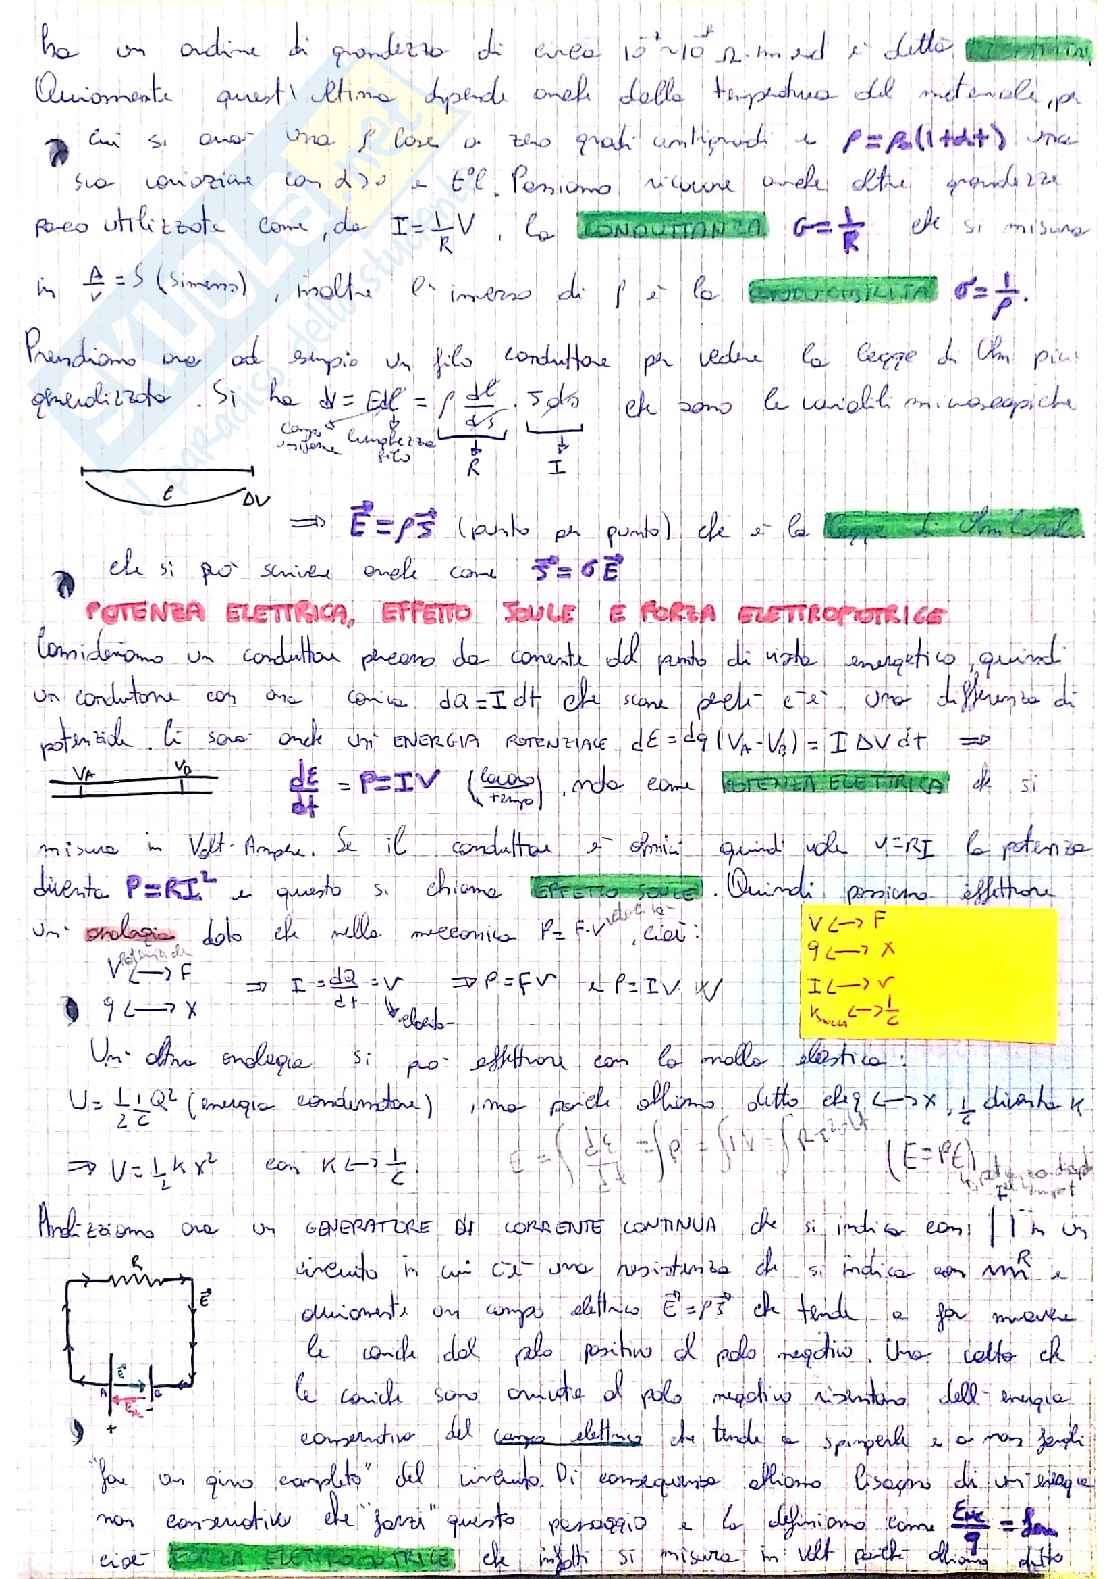 ha un ordine di grandezza di circa
Ovviamente quest'ultima dipende anche dalla temperatura del materiale, per
cui si avrà una ρ base a zero gradi centigradi e ρ=ρ₀(1+αt) una
sua variazione con α>0 e t°C. Possiamo ricavare anche altre grandezze
poco utilizzate come, da I=1/R V, la CONDUTTANZA G=1/R che si misura
in A/V = S (Simens), inoltre l'inverso di ρ è la CONDUCIBILITÀ σ=1/ρ.
Prendiamo ora ad esempio un filo conduttore per vedere la legge di Ohm più
generalizzata. Si ha dV = Edl = ρ dl/dS · J dS che sono le variabili microscopiche
campo uniforme lunghezza filo R I
l ΔV
⇒ E⃗=ρJ⃗ (punto per punto) che è la legge di Ohm locale
che si può scrivere anche come J⃗=σE⃗
POTENZA ELETTRICA, EFFETTO JOULE E FORZA ELETTROMOTRICE
Consideriamo un conduttore percorso da corrente dal punto di vista energetico, quindi
un conduttore con una carica dQ=Idt che scorre perché c'è una differenza di
potenziale. Ci sarà anche un'ENERGIA POTENZIALE dE=dq(VA-VB)=IΔVdt ⇒
VA VB dE/dt = P=IV (lavoro/tempo), nota come POTENZA ELETTRICA che si
misura in Volt·Ampere. Se il conduttore è ohmico quindi vale V=RI la potenza
diventa P=RI² e questo si chiama EFFETTO JOULE. Quindi possiamo effettuare
un'analogia dato che nella meccanica P=F·v velocità, cioè:
potenziale V⟷F ⇒ I=dQ/dt=v ⇒P=Fv e P=IV
q⟷x velocità
V⟷F
q⟷x
I⟷v
⟷1/C
Un'altra analogia si può effettuare con la molla elastica:
U=1/2 1/C Q² (energia condensatore), ma poiché abbiamo detto che q⟷x, 1/C diventa K
⇒ U=1/2 Kx² con K⟷1/C
Analizziamo ora un GENERATORE DI CORRENTE CONTINUA che si indica con in un
circuito in cui c'è una resistenza che si indica con R e
ovviamente un campo elettrico E⃗=ρJ⃗ che tende a far muovere
le cariche dal polo positivo al polo negativo. Una volta che
le cariche sono arrivate al polo negativo risentono dell'energia
conservativa del campo elettrico che tende a spingerle e a non fargli
"fare un giro completo" del circuito. Di conseguenza abbiamo bisogno di un'energia
non conservativa che "forzi" questo passaggio e la definiamo come Enc/q = fem
cioè FORZA ELETTROMOTRICE che infatti si misura in volt poiché abbiamo detto
R
E⃗
A B
+ -